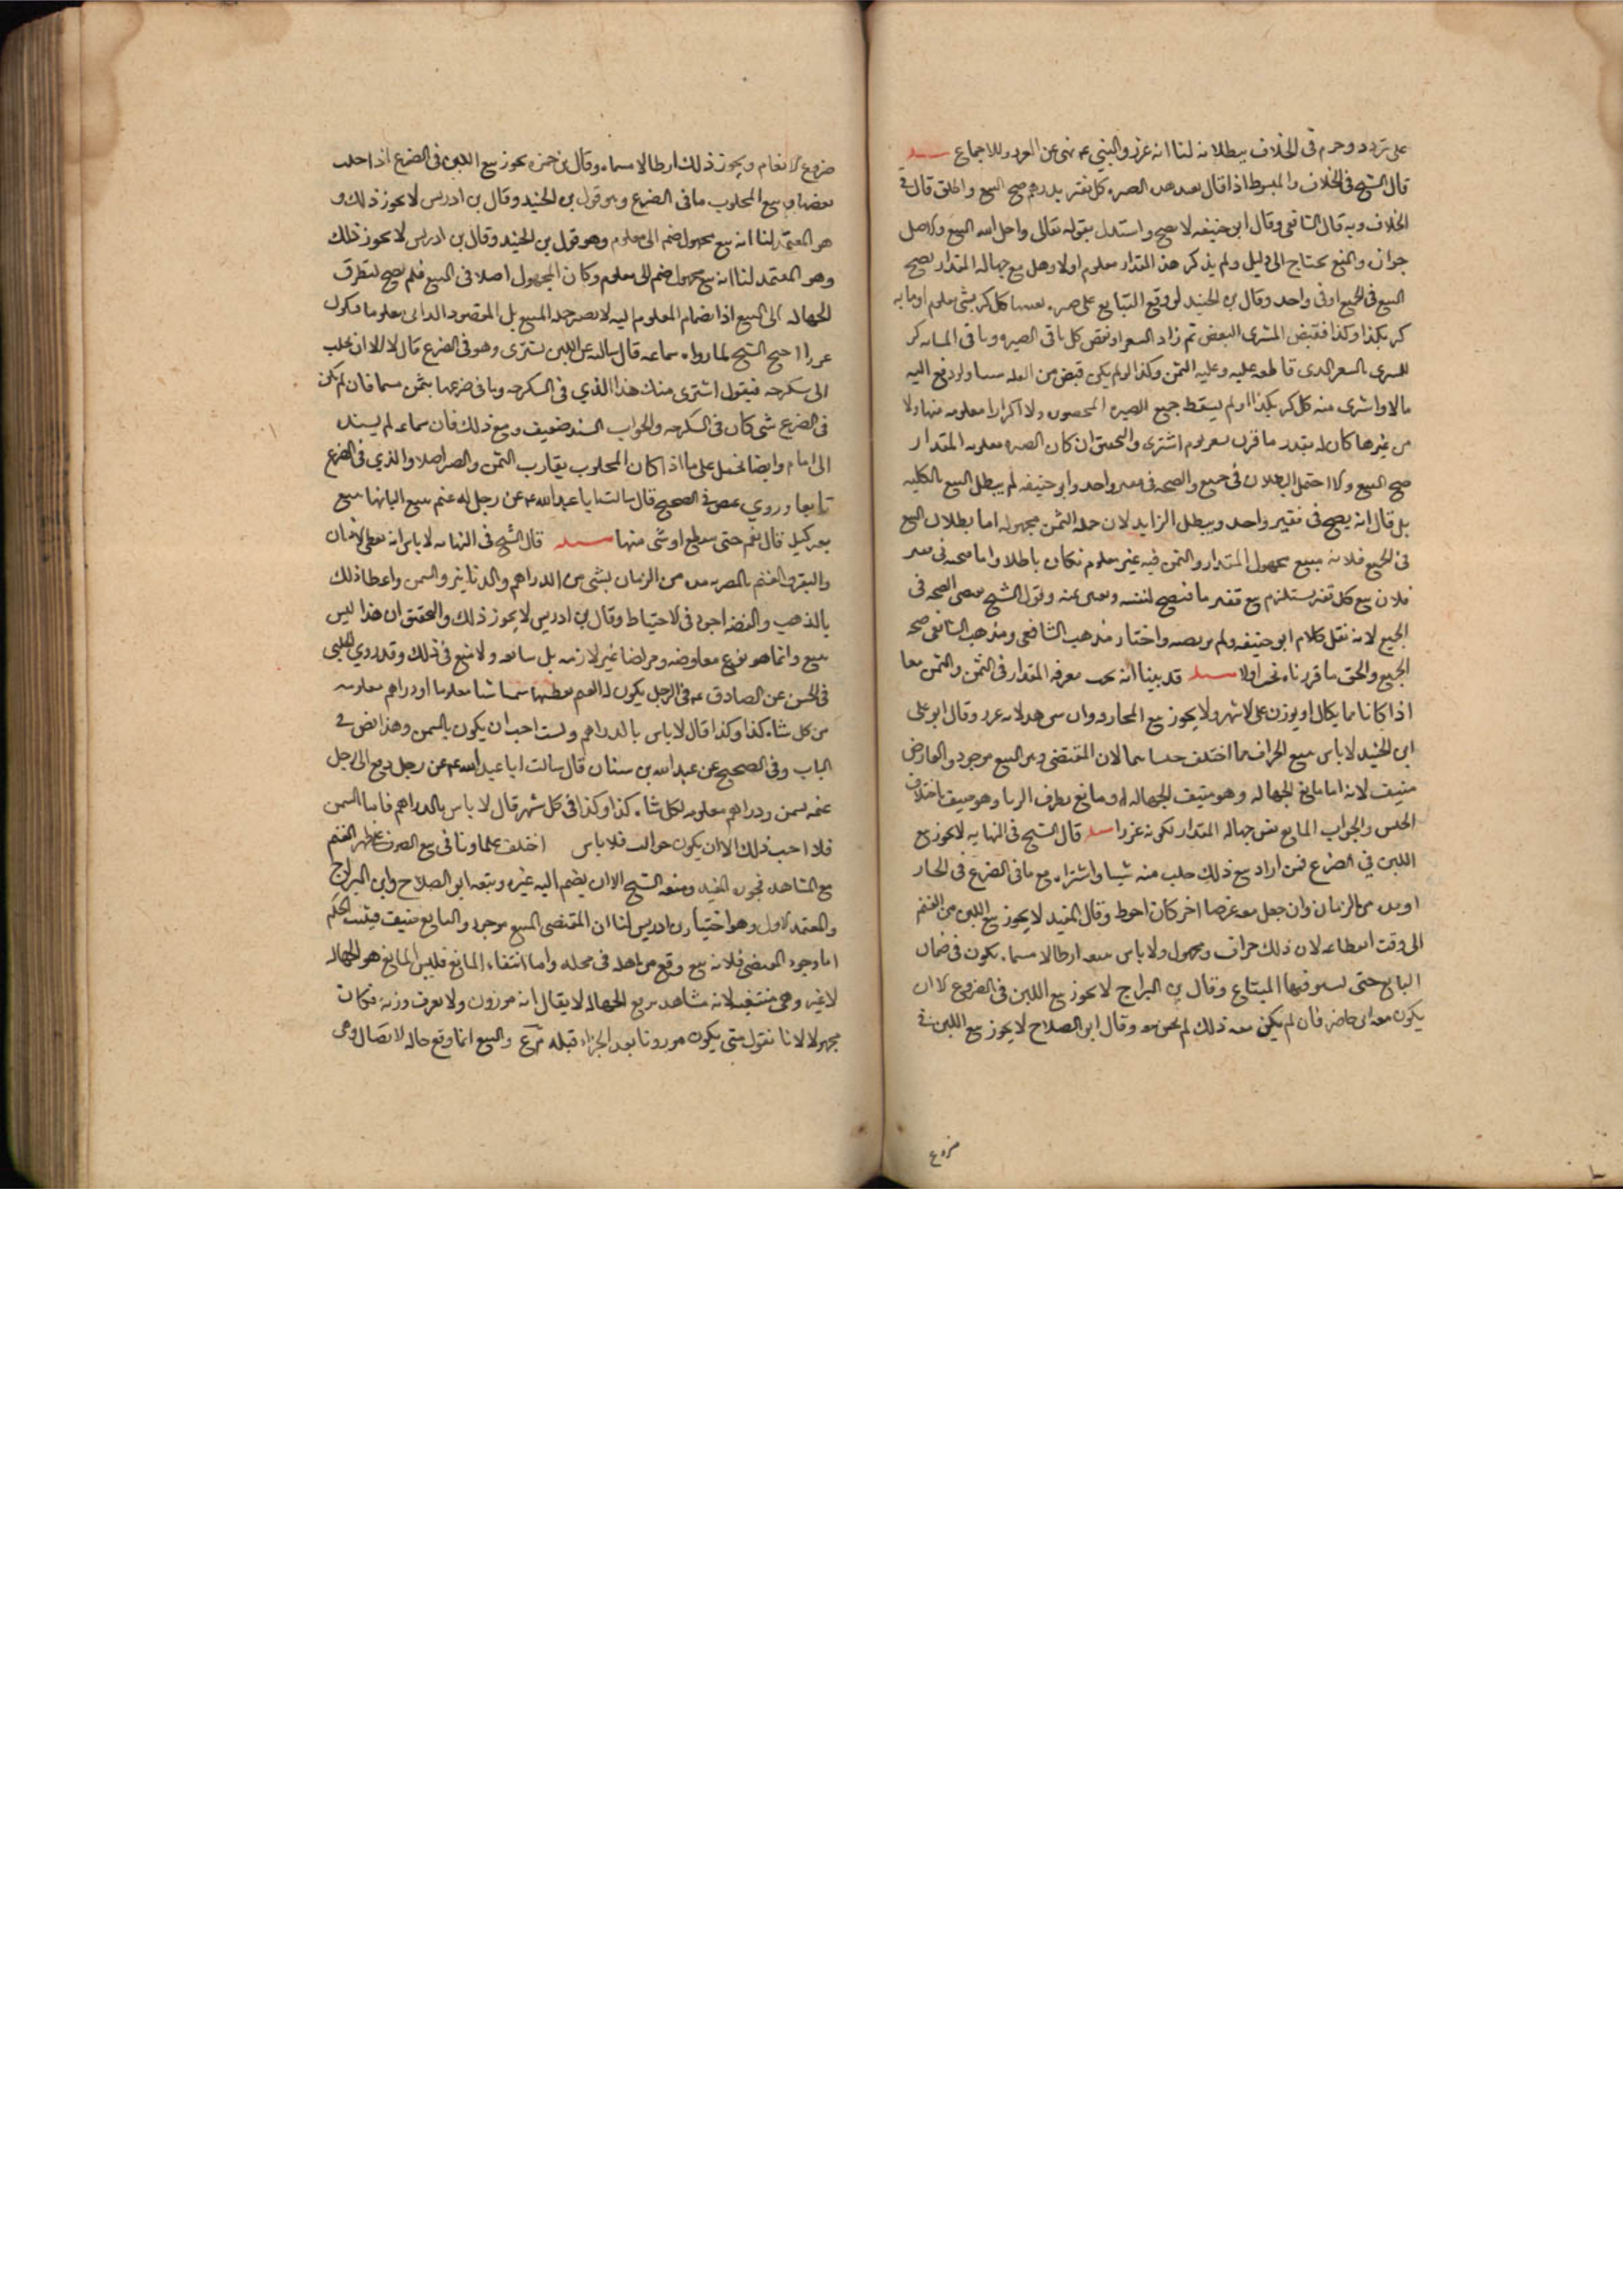 على تردد وجزم فى الخلاف ببطلانه لنا انه غرر والنبي عم نهى عن الغرر وللاجماع مسله
قال الشيخ فى الخلاف والمبسوط اذا قال بعتك هذه الصبره كل قفيز بدرهم صح البيع واطلق قال فى
الخلاف وبه قال الشافعى وقال ابو حنيفه لا يصح واستدل بقوله تعالى واحل الله البيع والاصل
جوازه والمنع يحتاج الى دليل ولم يذكر هذا المقدار معلوم اولا وهل مع جهاله المقدار يصح
البيع فى الجميع او فى واحد وقال بن الجنيد لو وقع التبايع على صبره بعينها كل كر بشى معلوم او مايه
كر بكذا وكذا فقبض المشترى البعض ثم زاد السعر او نقص كل باقى الصبره وباقى المايه كر
للمشترى بالسعر الذى قاطعه عليه وعليه الثمن وكذا لو لم يكن قبض من الغله شيا ولو دفع اليه
مالا واشترى منه كل كر بكذا ولم يسقط جميع الصبره ولا اكرارا معلومه منها ولا
من غيرها كان له بقدر ما قرب سعر يوم اشترى والتحقيق ان كان الصبره معلومه المقدار
صح البيع والا احتمل البطلان فى جميع والصحه فى قفيز واحد وابو حنيفه لم يبطل البيع بالكليه
بل قال انه يصح فى قفيز واحد ويبطل الزايد لان جمله الثمن مجهوله اما بطلان البيع
فى الجميع فلانه مبيع مجهول المقدار والثمن فيه غير معلوم فكان باطلا واما صحته فى قفيز
فلان بيع كل قفيز يستلزم بيع قفيز ما فيصح لتعينه وتعين ثمنه وقول الشيخ يعطى الصحه فى
الجميع لانه نقل كلام ابو حنيفه ولم يرتضه واختار مذهب الشافعى ومذهب الشافعى صحه
الجميع والحق ما قررناه نحن اولا مسله قد بينا انه يجب معرفه المقدار فى الثمن والثمن معا
اذا كانا مما يكال او يوزن على الاشهر ولا يجوز بيع المجازفه وان شوهد لانه غرر وقال ابو على
ابن الجنيد لا باس ببيع الجزاف مما اختلف جنسا هما لان المقتضى وهو البيع موجود والعارض
منتيف لانه اما مانع الجهاله وهو منتيف الجهاله له ومانع تطرف الربا وهو منتيف باختلاف
الجنس والجواب المانع نفس جهاله المقدار لكونه غررا مسله قال الشيخ فى النهايه لا يجوز بيع
اللبن فى الضرع فمن اراد بيع ذلك حلب منه شيا واشتراه مع ما فى الضرع فى الحال
او مده من الزمان وان جعل معه عرضا اخر كان احوط وقال المفيد لا يجوز بيع اللبن من الغنم
الى وقت انقطاعه لان ذلك جزاف ومجهول ولا باس ببيعه ارطالا مسماه تكون فى ضمان
البايع حتى يستوفيها المبتاع وقال بن البراج لا يجوز بيع اللبن فى الضروع الا ان
يكون معه حاضر فان لم يكن معه ذلك لم يجز بيعه وقال ابو الصلاح لا يجوز بيع اللبن فى
ضروع
ضروع الانعام ويجوز ذلك ارطالا مسماه وقال بن حمزه يجوز بيع اللبن فى الضرع اذا حلب
بعضها وبيع المحلوب مافى الضرع وهو قول بن الجنيد وقال بن ادريس لا يجوز ذلك و
هو المعتمد لنا انه بيع مجهول ضم الى معلوم وهو قول بن الجنيد وقال بن ادريس لا يجوز ذلك
وهو المعتمد لنا انه بيع مجهول ضم الى معلوم وكان المجهول اصلا فى البيع فلم يصح لتطرق
الجهاله الى البيع اذا بضمام المعلوم اليه لا يصير جمله المبيع بل المقصود الذاتى معلوما فيكون
غررا احتج الشيخ لما رواه سماعه قال سالته عن اللبن يشترى وهو فى الضرع قال لا الا ان يحلب
الى سكرجه فيقول اشترى منك هذا الذي فى السكرجه وما فى ضرعها بثمن مسما فان لم يكن
فى الضرع شى كان فى السكرجه والجواب السند ضعيف ومع ذلك فان سماعه لم يسنده
الى امام وايضا نحمل على ما اذا كان المحلوب يقارب الثمن والصير اصلا والذي فى الضرع
تابعا وروي عيص فى الصحيح قال سالت ابا عبد الله عم عن رجل له غنم يبيع البانها بيع
بغير كيل قال نعم حتى ينقطع او شى منها مسله قال الشيخ فى النهايه لا باس انه يعطى الانسان
والبقر والغنم بالضريبه مده من الزمان بشى من الدراهم والدنانير والسمن واعطا ذلك
بالذهب والفضه اجود فى الاحتياط وقال بن ادريس لا يجوز ذلك والتحقيق ان هذا ليس
ببيع وانما هو نوع معاوضه ومراضا غير لازمه بل سائغه ولا منع فى ذلك وقد روي الحلبى
فى الحسن عن الصادق عم فى الرجل يكون له الغنم يعطيها سمنا شا معلوما او دراهم معلومه
من كل شاه كذا وكذا قال لا باس بالدراهم ولست احب ان يكون بالسمن وهذا نص فى
الباب وفى الصحيح عن عبد الله بن سنان قال سالت ابا عبد الله عم عن رجل دفع الى رجل
غنمه بسمن ودراهم معلومه لكل شاه كذا وكذا فى كل شهر قال لا باس بالدراهم فاما السمن
فلا احب ذلك الا ان يكون حوالب فلا باس اختلف علماونا فى بيع الصوف على ظهر الغنم
مع المشاهده فجوزه المفيد ومنعه الشيخ الا ان يضم اليه غيره وتبعه ابو الصلاح وابن البراج
والمعتمد الاول وهو اختيار بن ادريس لنا ان المقتضى البيع موجود والمانع منتيف فيثبت الحكم
اما وجود المقتضى فلانه بيع وقع من اهله فى محله واما انتفاء المانع فليس المانع هو الجهاله
لا غير وهى منتفيه لانه مشاهد يرفع الجهاله لا يقال انه موزون ولا يعرف وزنه فكانت
مجهولا لانا نقول متى يكون موزونا بعد الجز او قبله والبيع انما وقع حاله الاتصال وهى